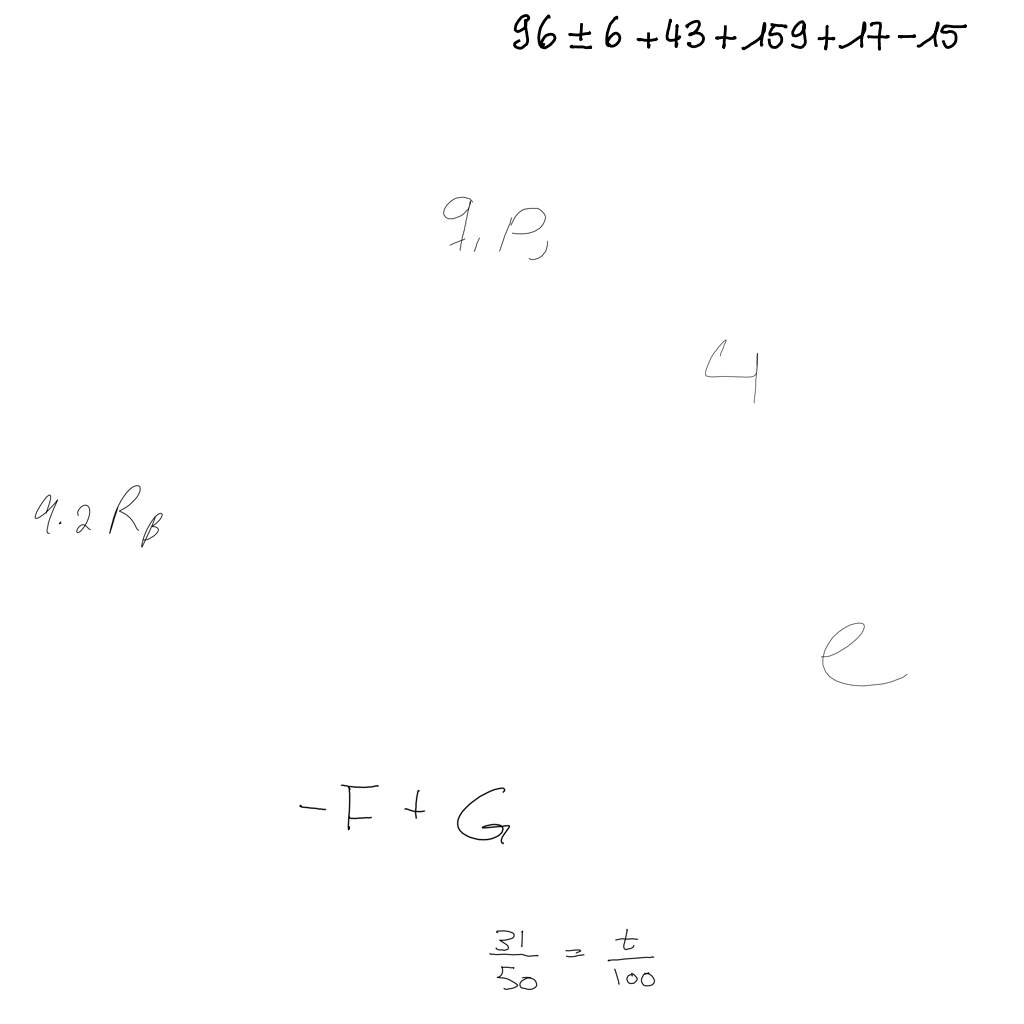 96 ± 6 + 43 + 159 + 17 - 15
q, P,
4
9.2 R_β
e
- F + G
31/50 = t/100